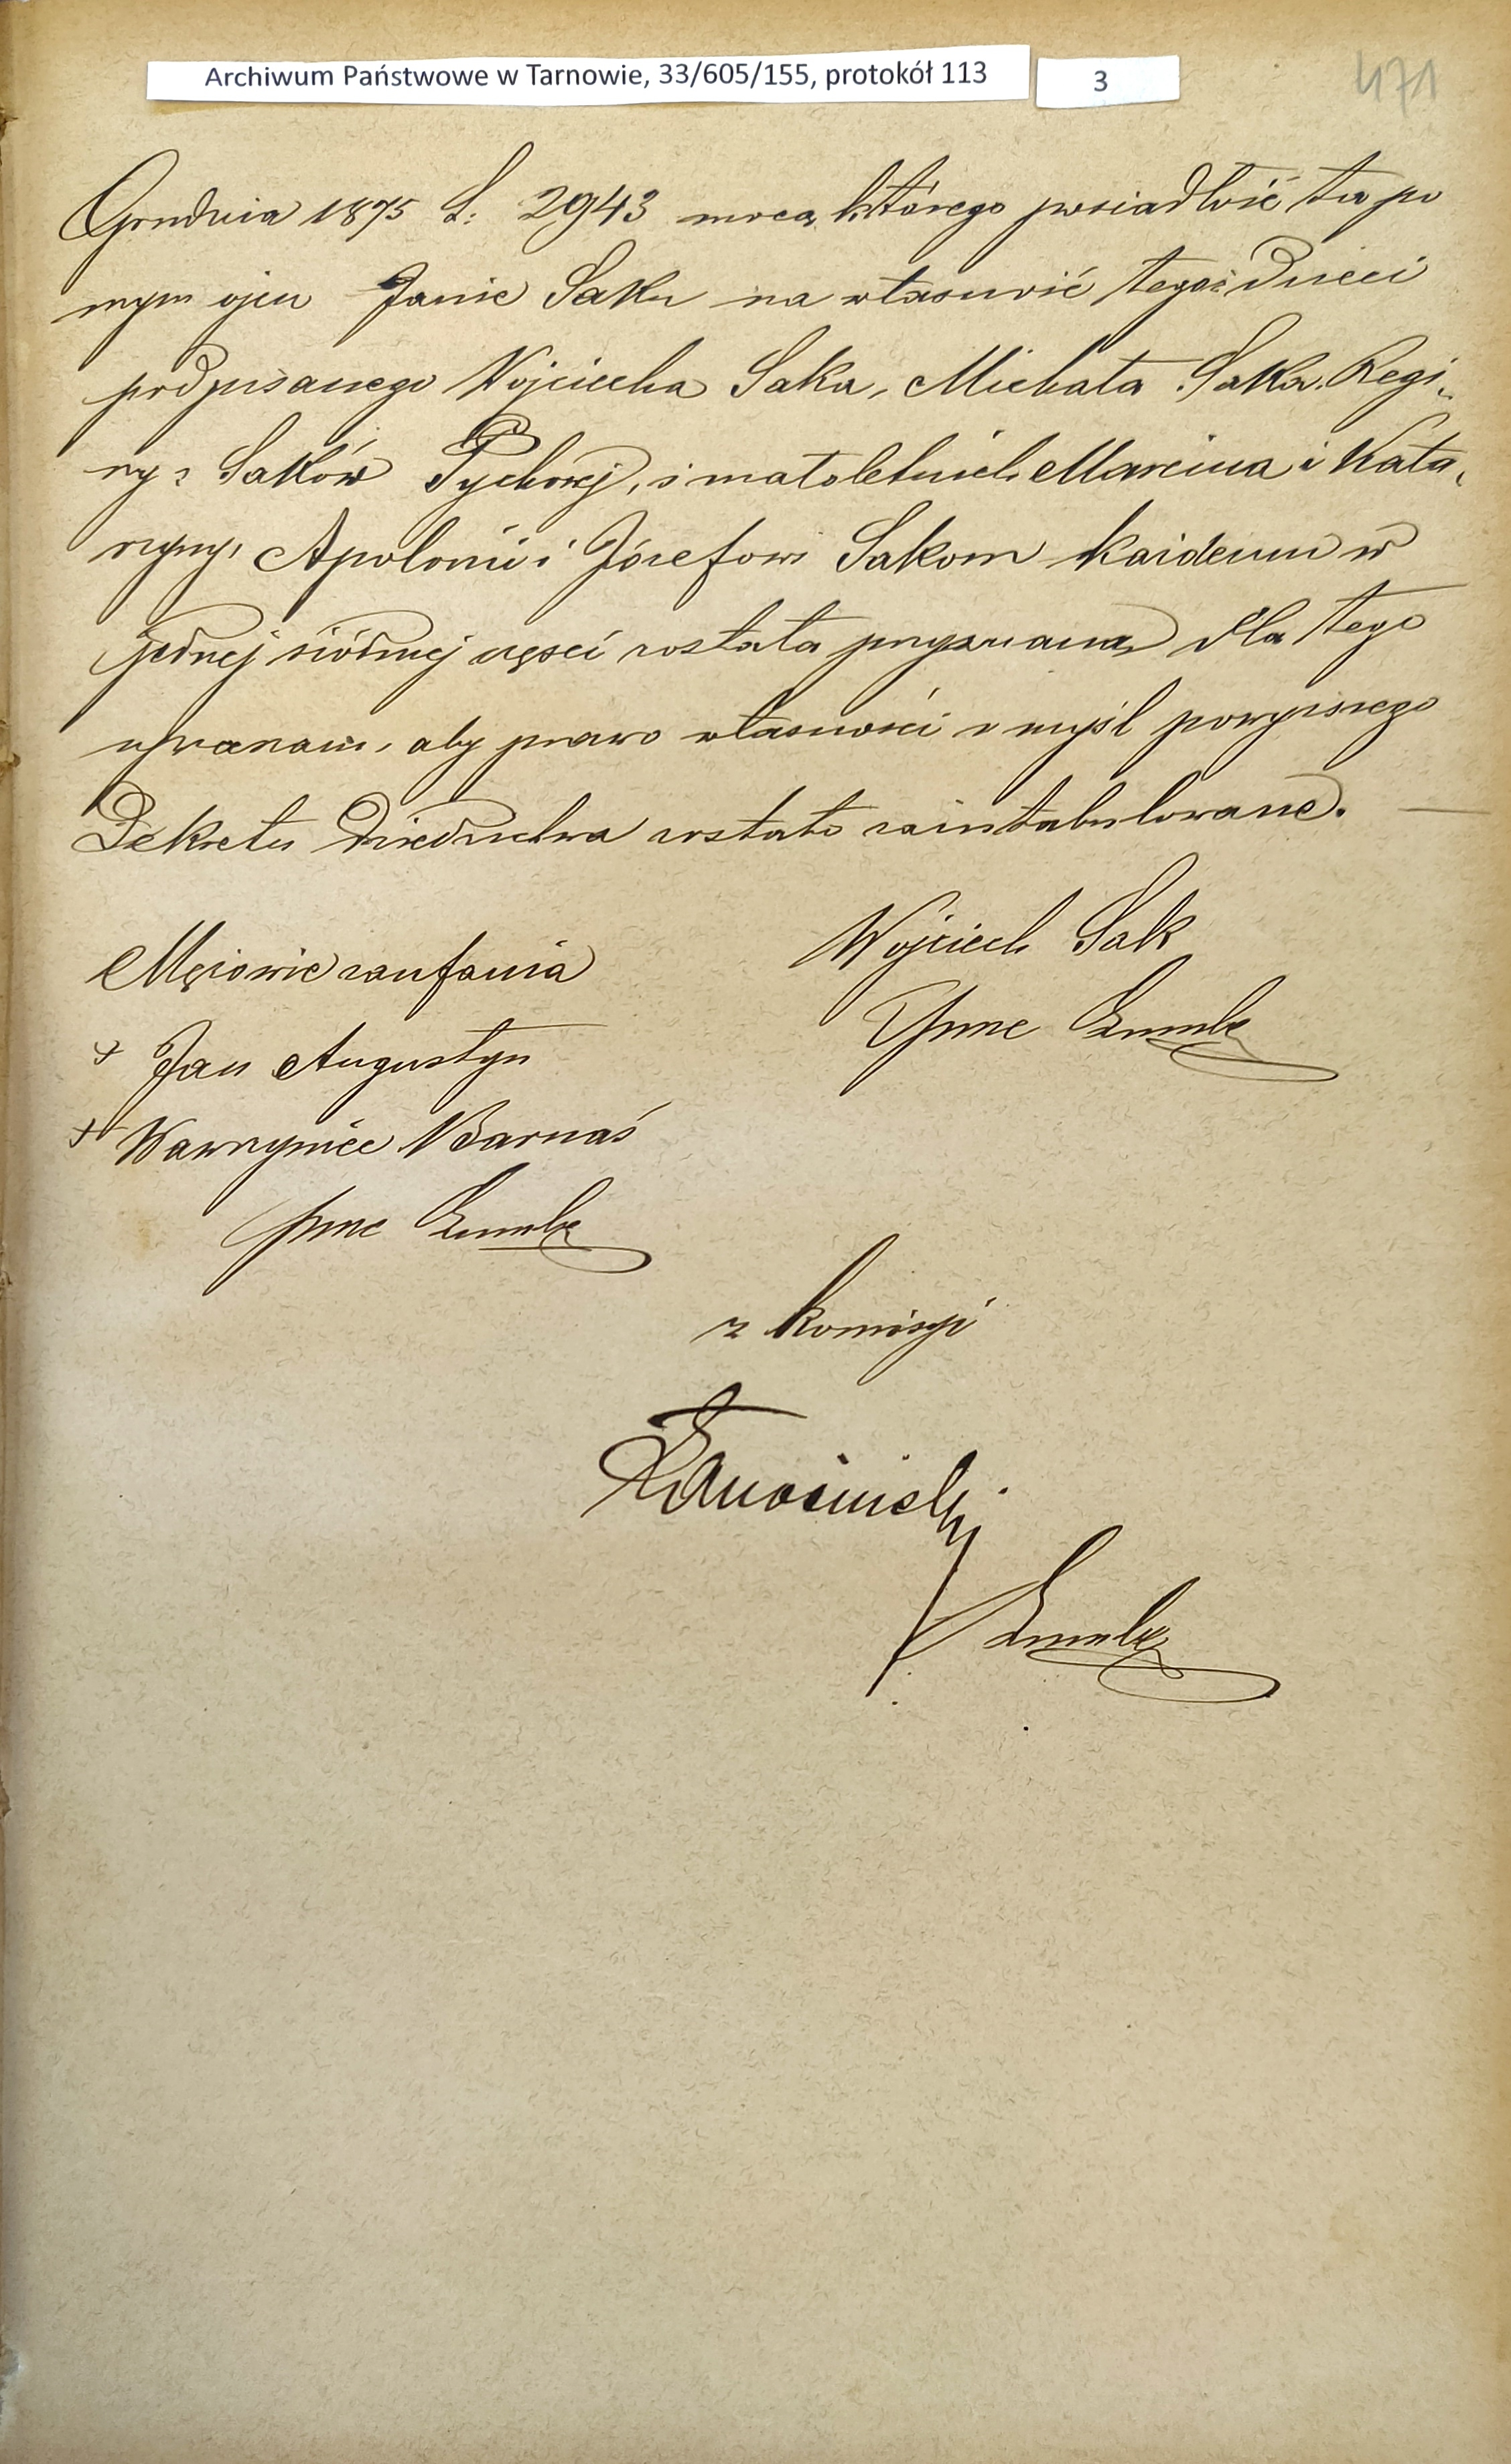 Archiwum Państwowe w Tarnowie, 33/605/155, protokół 113
3
471
Grudnia 1875 L: 2943 mocą którego posiadłość ta po
mym ojcu Janie Saku na własność tegoż dzieci
podpisanego Wojciecha Saka, Michała Saka, Regi„
ny z Saków Pychowej, i małoletnich Marcina i Kata„
rzyny, Apolonii i Józefowi Sakom każdemu w
jednej siódmej części została przyznaną dla tego
upraszam, aby prawo własności w myśl powyższego
Dekretu dziedzictwa zostało zaintabulowane. —
Wojciech Sak
Mężowie zaufania
+ Jan Augustyn
+ Wawrzyniec Barnaś
z komisyi